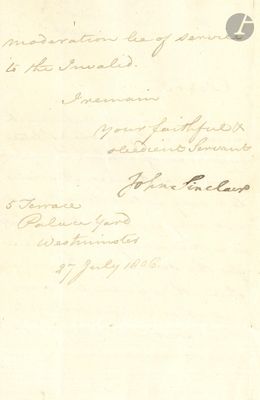 moderation be of service
to the Invalid.
I remain
Your faithful &
obedient Servant
John Sinclair
5 Terrace
Palace Yard
Westminster
27 July 1806